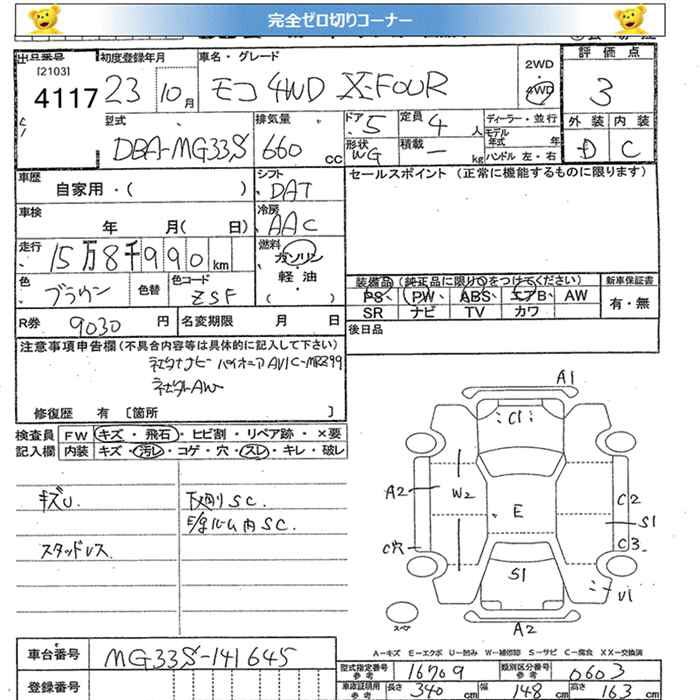 完全ゼロ切りコーナー
出品番号 初度登録年月 車名・グレード 2WD・4WD 評価点
[2103]
4117 23 10月 モコ 4WD X-FOUR 3
型式 排気量 ドア 定員 ディーラー・並行 外装 内装
DBA-MG33S 660cc 5 4人 モデル年式 年 D C
形状 WG 積載 ー kg ハンドル 左・右
車歴 シフト セールスポイント (正常に機能するものに限ります)
自家用・( ) DAT
車検 冷房
年 月( 日) AAC
走行 燃料
15万8千990km ガソリン・軽油
( )
色 色替 色コード 装備品 (純正品に限り○をつけてください) 新車保証書
ブラウン ZSF PS、 PW、 ABS、 エアB、 AW 有・無
SR ナビ TV カワ
R券 9030円 名変期限 月 日 後日品
注意事項申告欄(不具合内容等は具体的に記入して下さい)
社外ナビー パイオニア AVIC-MRZ99
社外AW
修復歴 有 〔箇所 〕
検査員 FW キズ・飛石・ヒビ割・リペア跡・×要
記入欄 内装 キズ・汚レ・コゲ・穴・スレ・キレ・破レ
キズU. 下廻りSC.
E/gルーム内SC.
スタッドレス
A1
C1
A2 W2 E C2
S1
C穴 C3
S1 U1
A2
スペア
A-キズ E-エクボ U-凹み W-補修跡 S-サビ C-腐食 XX-交換済
車台番号 MG33S-141645
型式指定番号 参考 16709 類別区分番号 参考 0603
登録番号 車庫証明用 参考 長さ 340cm 幅 148cm 高さ 163cm